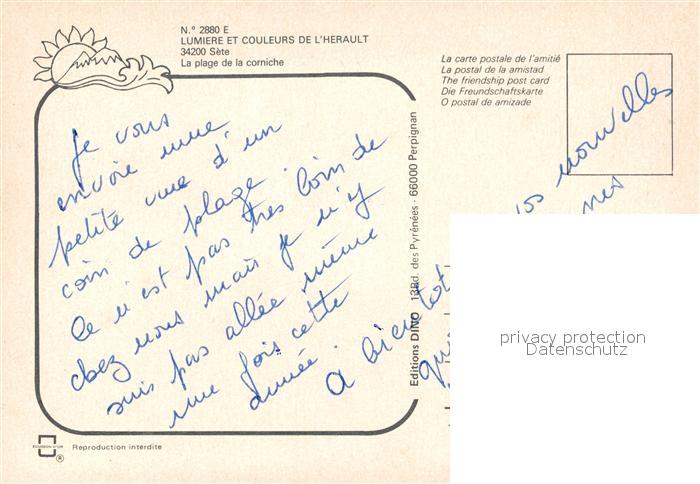 N.° 2880 E
LUMIERE ET COULEURS DE L'HERAULT
34200 Sète
La plage de la corniche
La carte postale de l'amitié
La postal de la amistad
The friendship post card
Die Freundschaftskarte
O postal de amizade
Je vous
envoie une
petite vue d'un
coin de plage.
Ce n'est pas très loin de
chez nous mais je n'y
suis pas allée même
une fois cette
année.
A bientot
vos nouvelles
Editions DINO 13Bd. des Pyrénées - 66000 Perpignan
privacy protection
Datenschutz
Reproduction interdite
®